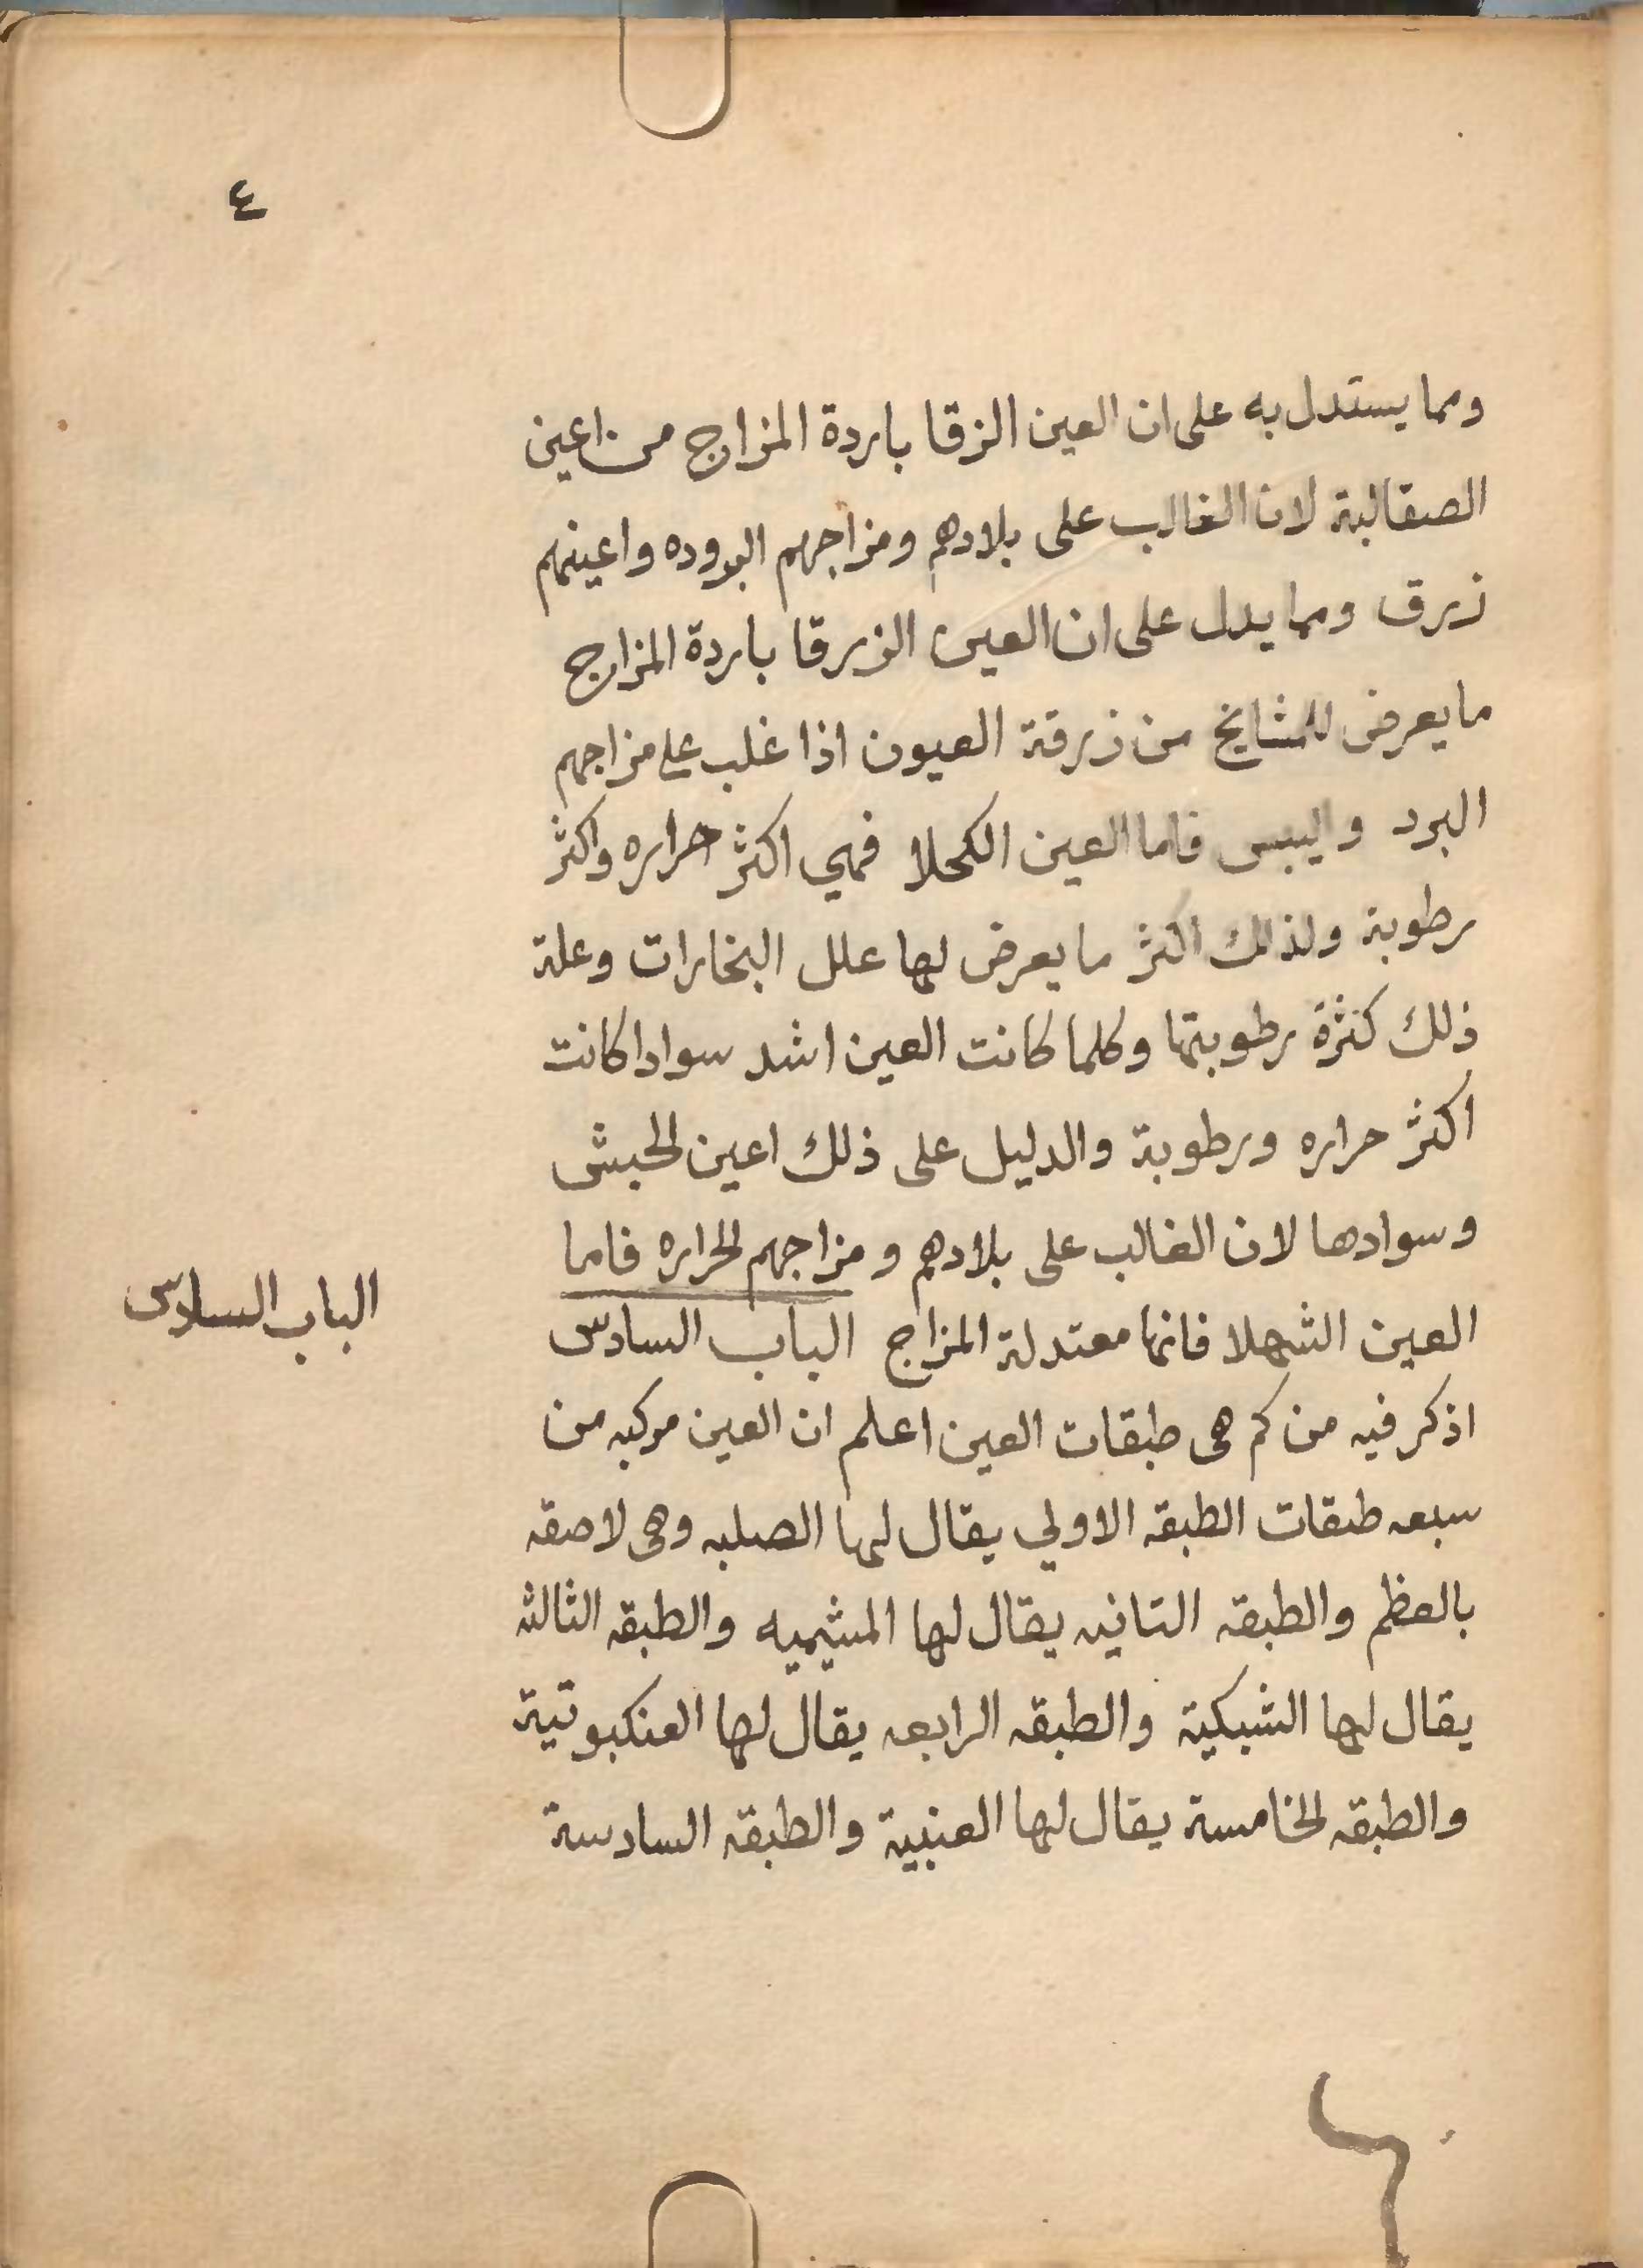 ٤
ومما يستدل به على ان العين الزقا باردة المزاج من اعين
الصقالبة لان الغالب على بلادهم ومزاجهم البروده واعينهم
زرق ومما يدل على ان العين الزرقا باردة المزاج
ما يعرض للمشايخ من زرقة العيون اذا غلب على مزاجهم
البرد واليبس فاما العين الكحلا فهي اكثر حراره واكثر
رطوبة ولذلك اكثر ما يعرض لها علل البخارات وعلة
ذلك كثرة رطوبتها وكلما كانت العين اشد سوادا كانت
اكثر حراره ورطوبة والدليل على ذلك اعين الحبش
وسوادها لان الغالب على بلادهم ومزاجهم الحراره فاما
العين الشهلا فانها معتدلة المزاج الباب السادس
الباب السادس
اذكر فيه من كم هى طبقات العين اعلم ان العين مركبه من
سبعه طبقات الطبقه الاولي يقال لها الصلبه وهى لاصقه
بالعظم والطبقه التانيه يقال لها المشيميه والطبقه الثالثه
يقال لها الشبكية والطبقه الرابعه يقال لها العنكبوتية
والطبقه الخامسة يقال لها العنبية والطبقه السادسة